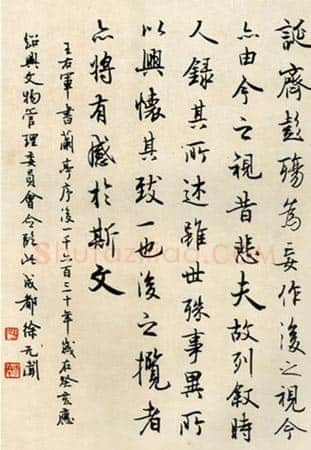 誕齊彭殤為妄作後之視今
亦由今之視昔悲夫故列敘時
人錄其所述雖世殊事異所
以興懷其致一也後之攬者
亦將有感於斯文
王右軍書蘭亭序後一千六百三十年歲在癸亥應
紹興文物管理委員會臨此成都徐无聞